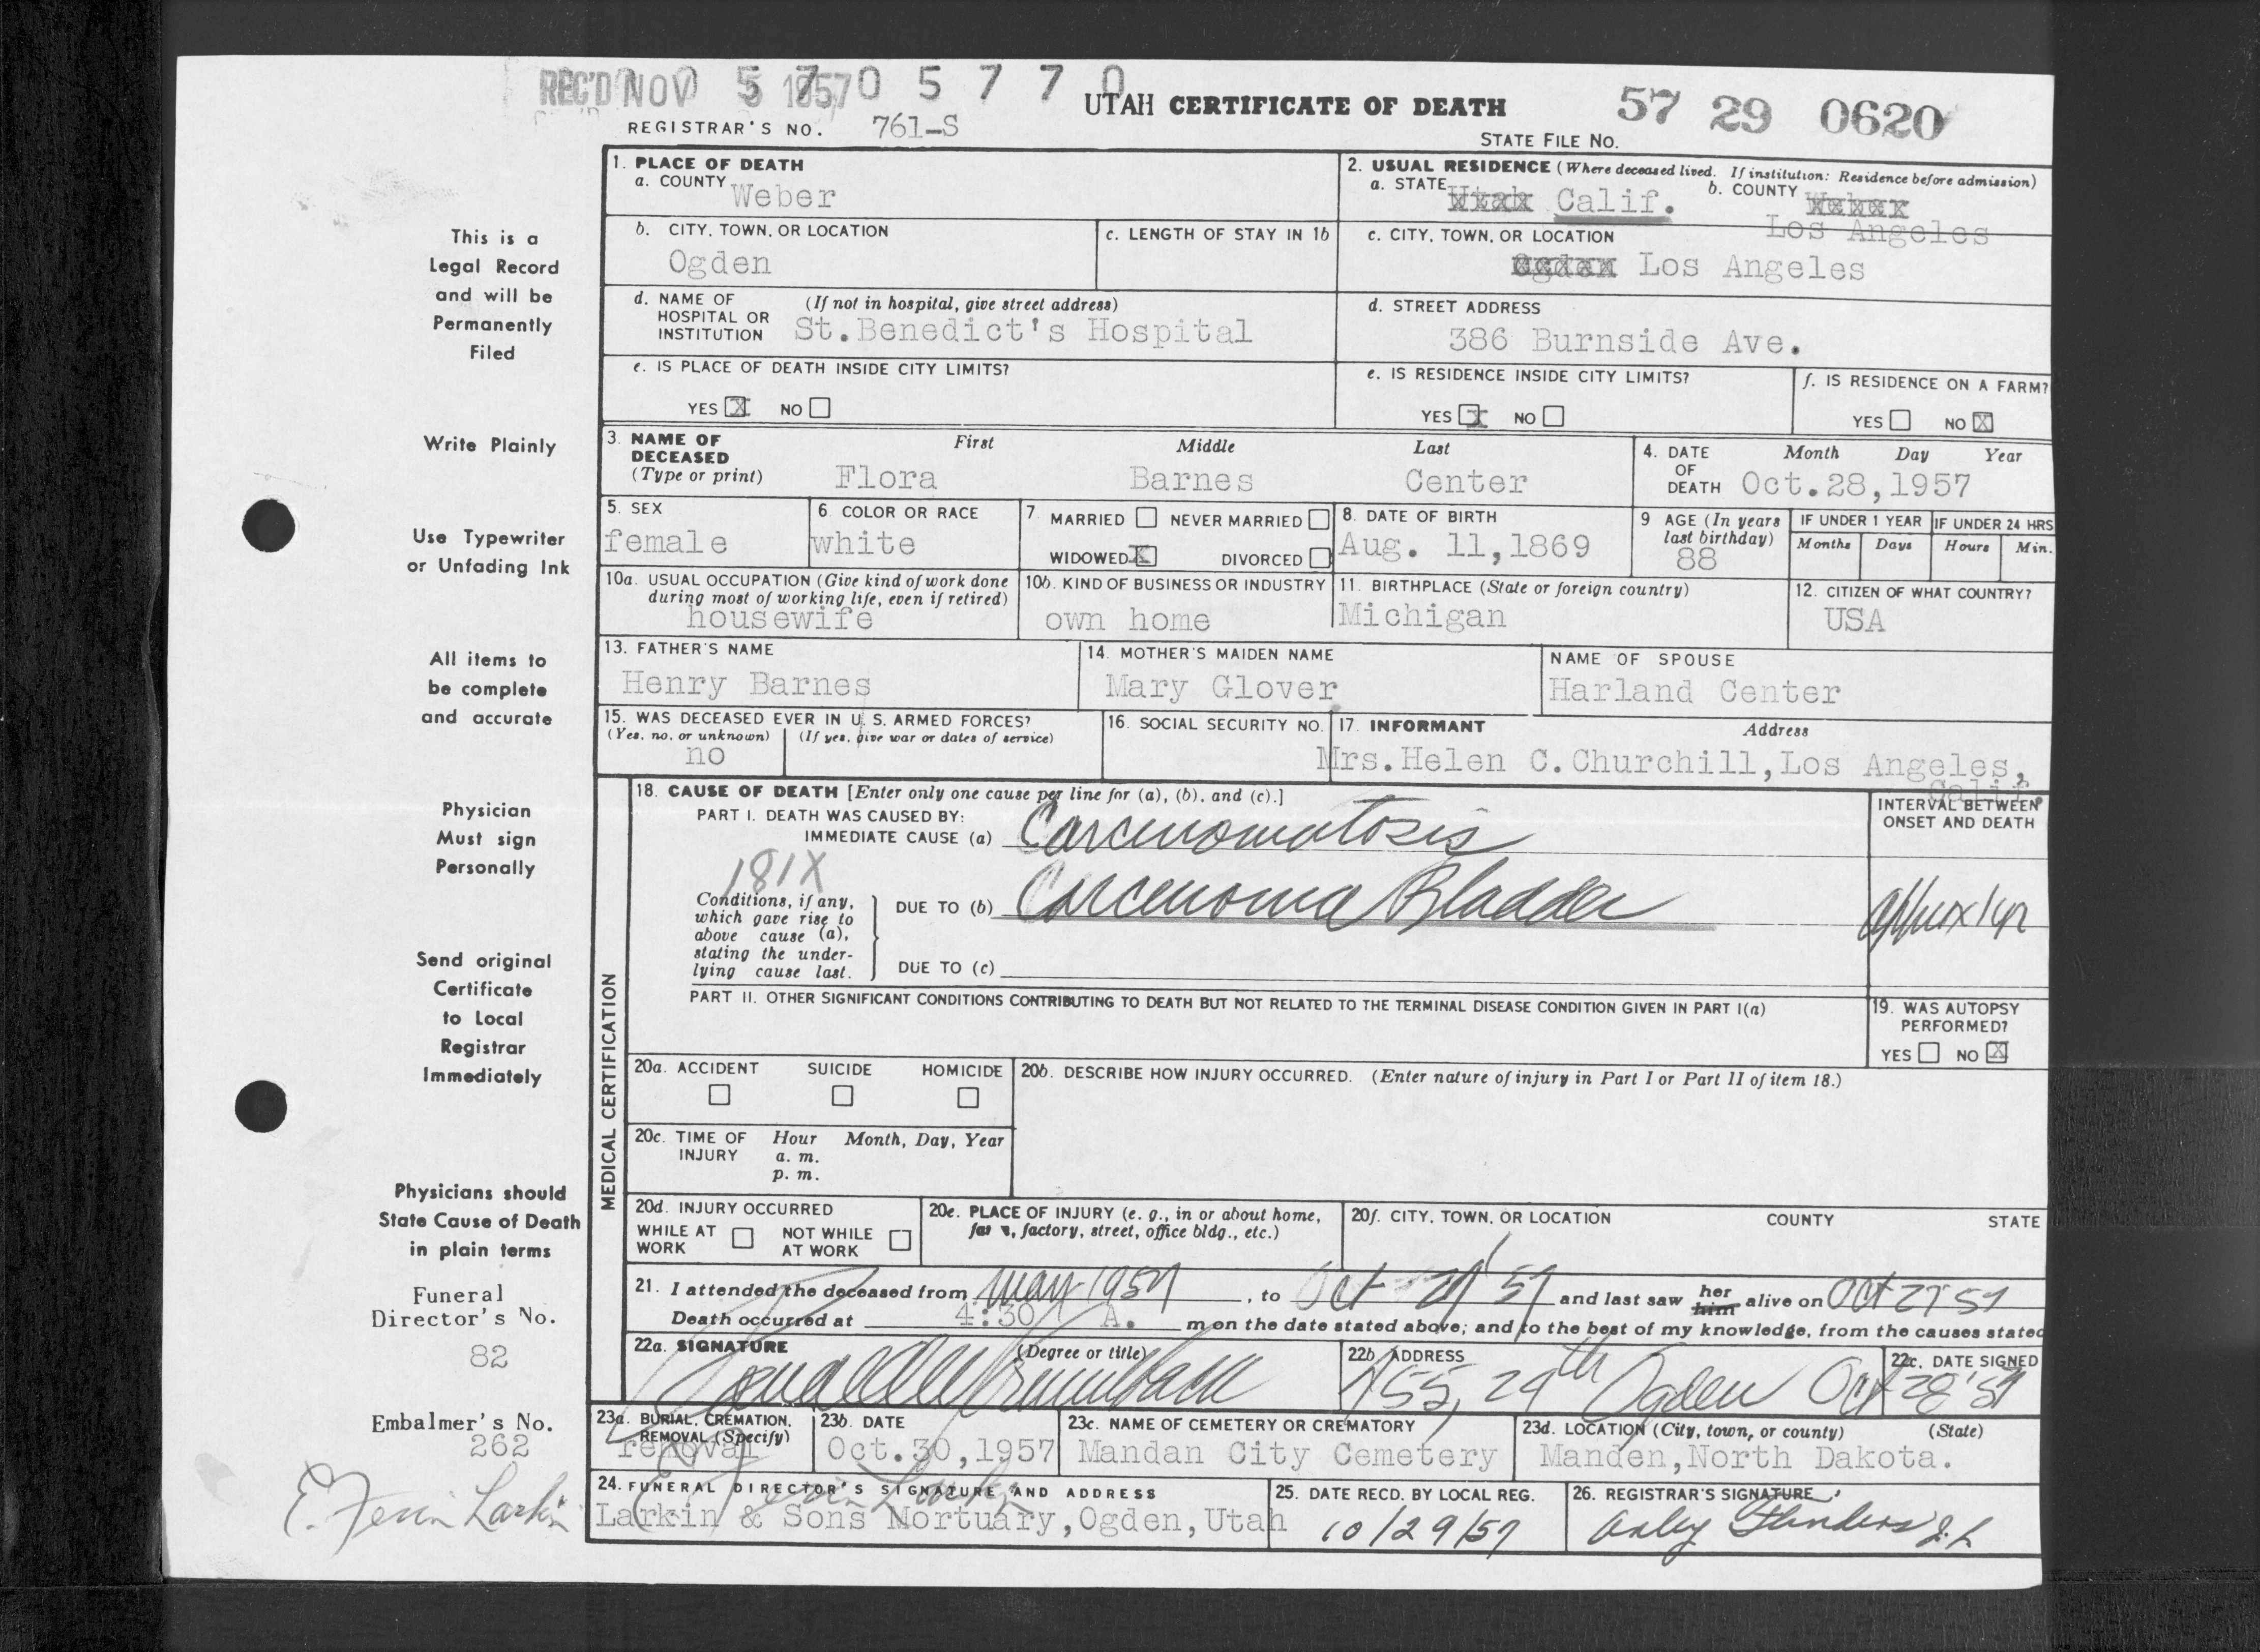 REC'D NOV 5 1957 0 5 7 7 0
UTAH CERTIFICATE OF DEATH
57 29 0620
REGISTRAR'S NO. 761-S
STATE FILE NO.
This is a
Legal Record
and will be
Permanently
Filed
Write Plainly
Use Typewriter
or Unfading Ink
All items to
be complete
and accurate
Physician
Must sign
Personally
Send original
Certificate
to Local
Registrar
Immediately
Physicians should
State Cause of Death
in plain terms
Funeral
Director's No.
82
Embalmer's No.
262
E. Ferrin Larkin
1. PLACE OF DEATH
a. COUNTY Weber
2. USUAL RESIDENCE (Where deceased lived. If institution: Residence before admission)
a. STATE Utah Calif.
b. COUNTY Weber
Los Angeles
b. CITY, TOWN, OR LOCATION
Ogden
c. LENGTH OF STAY IN 1b
c. CITY, TOWN, OR LOCATION
Ogden Los Angeles
d. NAME OF HOSPITAL OR INSTITUTION (If not in hospital, give street address)
St.Benedict's Hospital
d. STREET ADDRESS
386 Burnside Ave.
e. IS PLACE OF DEATH INSIDE CITY LIMITS?
YES X NO
e. IS RESIDENCE INSIDE CITY LIMITS?
YES X NO
f. IS RESIDENCE ON A FARM?
YES NO X
3. NAME OF DECEASED (Type or print)
First Middle Last
Flora Barnes Center
4. DATE OF DEATH
Month Day Year
Oct.28,1957
5. SEX
female
6 COLOR OR RACE
white
7 MARRIED NEVER MARRIED
WIDOWED X DIVORCED
8. DATE OF BIRTH
Aug. 11,1869
9 AGE (In years last birthday)
88
IF UNDER 1 YEAR
Months Days
IF UNDER 24 HRS
Hours Min.
10a. USUAL OCCUPATION (Give kind of work done during most of working life, even if retired)
housewife
10b. KIND OF BUSINESS OR INDUSTRY
own home
11. BIRTHPLACE (State or foreign country)
Michigan
12. CITIZEN OF WHAT COUNTRY?
USA
13. FATHER'S NAME
Henry Barnes
14. MOTHER'S MAIDEN NAME
Mary Glover
NAME OF SPOUSE
Harland Center
15. WAS DECEASED EVER IN U. S. ARMED FORCES?
(Yes, no, or unknown) (If yes, give war or dates of service)
no
16. SOCIAL SECURITY NO.
17. INFORMANT Address
Mrs.Helen C.Churchill,Los Angeles,
Calif
MEDICAL CERTIFICATION
18. CAUSE OF DEATH [Enter only one cause per line for (a), (b), and (c).]
PART I. DEATH WAS CAUSED BY:
IMMEDIATE CAUSE (a) Carcinomatosis
INTERVAL BETWEEN ONSET AND DEATH
181X
Conditions, if any,
which gave rise to
above cause (a),
stating the under-
lying cause last.
DUE TO (b) Carcenoma Bladder
approx 1 yr
DUE TO (c)
PART II. OTHER SIGNIFICANT CONDITIONS CONTRIBUTING TO DEATH BUT NOT RELATED TO THE TERMINAL DISEASE CONDITION GIVEN IN PART I(a)
19. WAS AUTOPSY PERFORMED?
YES NO X
20a. ACCIDENT SUICIDE HOMICIDE
20b. DESCRIBE HOW INJURY OCCURRED. (Enter nature of injury in Part I or Part II of item 18.)
20c. TIME OF INJURY Hour Month, Day, Year
a. m.
p. m.
20d. INJURY OCCURRED
WHILE AT WORK NOT WHILE AT WORK
20e. PLACE OF INJURY (e. g., in or about home, farm, factory, street, office bldg., etc.)
20f. CITY, TOWN, OR LOCATION COUNTY STATE
21. I attended the deceased from May 1957, to Oct 57 and last saw her him alive on Oct 27 57
Death occurred at 4:30 A. m on the date stated above; and to the best of my knowledge, from the causes stated
22a. SIGNATURE (Degree or title)
22b ADDRESS
29th Ogden
22c. DATE SIGNED
Oct 28 '57
23a. BURIAL, CREMATION, REMOVAL (Specify)
removal
23b. DATE
Oct.30,1957
23c. NAME OF CEMETERY OR CREMATORY
Mandan City Cemetery
23d. LOCATION (City, town, or county) (State)
Manden,North Dakota.
24. FUNERAL DIRECTOR'S SIGNATURE AND ADDRESS
Larkin & Sons Mortuary,Ogden,Utah
25. DATE RECD. BY LOCAL REG.
10/29/57
26. REGISTRAR'S SIGNATURE